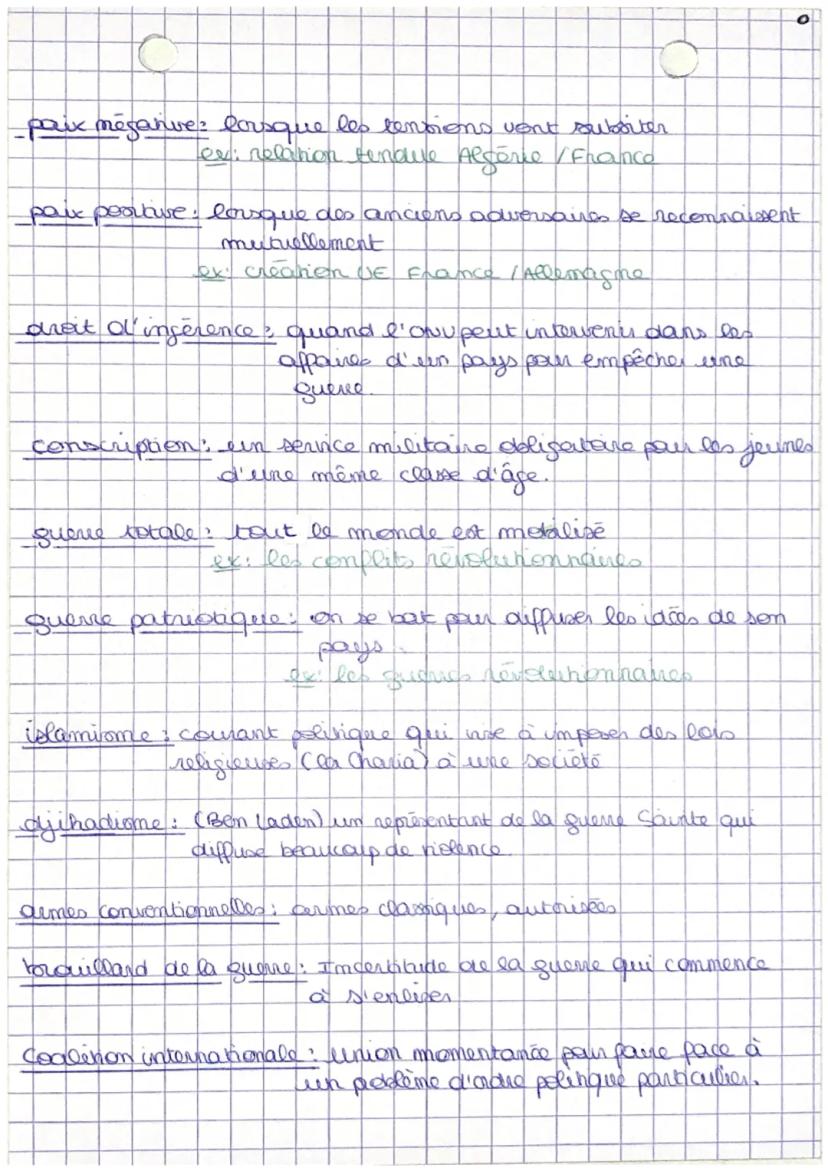 paix négative : lorsque les tensions vont subsister
ex : relation tendue Algérie / France
paix positive : lorsque des anciens adversaires se reconnaissent
mutuellement
ex : création UE France / Allemagne
droit d'ingérence : quand l'ONU peut intervenir dans les
affaires d'un pays pour empêcher une
guerre.
conscription : un service militaire obligatoire pour les jeunes
d'une même classe d'âge.
guerre totale : tout le monde est mobilisé
ex : les conflits révolutionnaires
guerre patriotique : on se bat pour diffuser les idées de son
pays.
ex : les guerres révolutionnaires
islamisme : courant politique qui vise à imposer des lois
religieuses (la Charia) à une société
djihadisme : (Ben Laden) un représentant de la guerre Sainte qui
diffuse beaucoup de violence.
armes conventionnelles : armes classiques, autorisées
brouillard de la guerre : Incertitude de la guerre qui commence
à s'enliser
Coalition internationale : union momentanée pour faire face à
un problème d'ordre politique particulier.